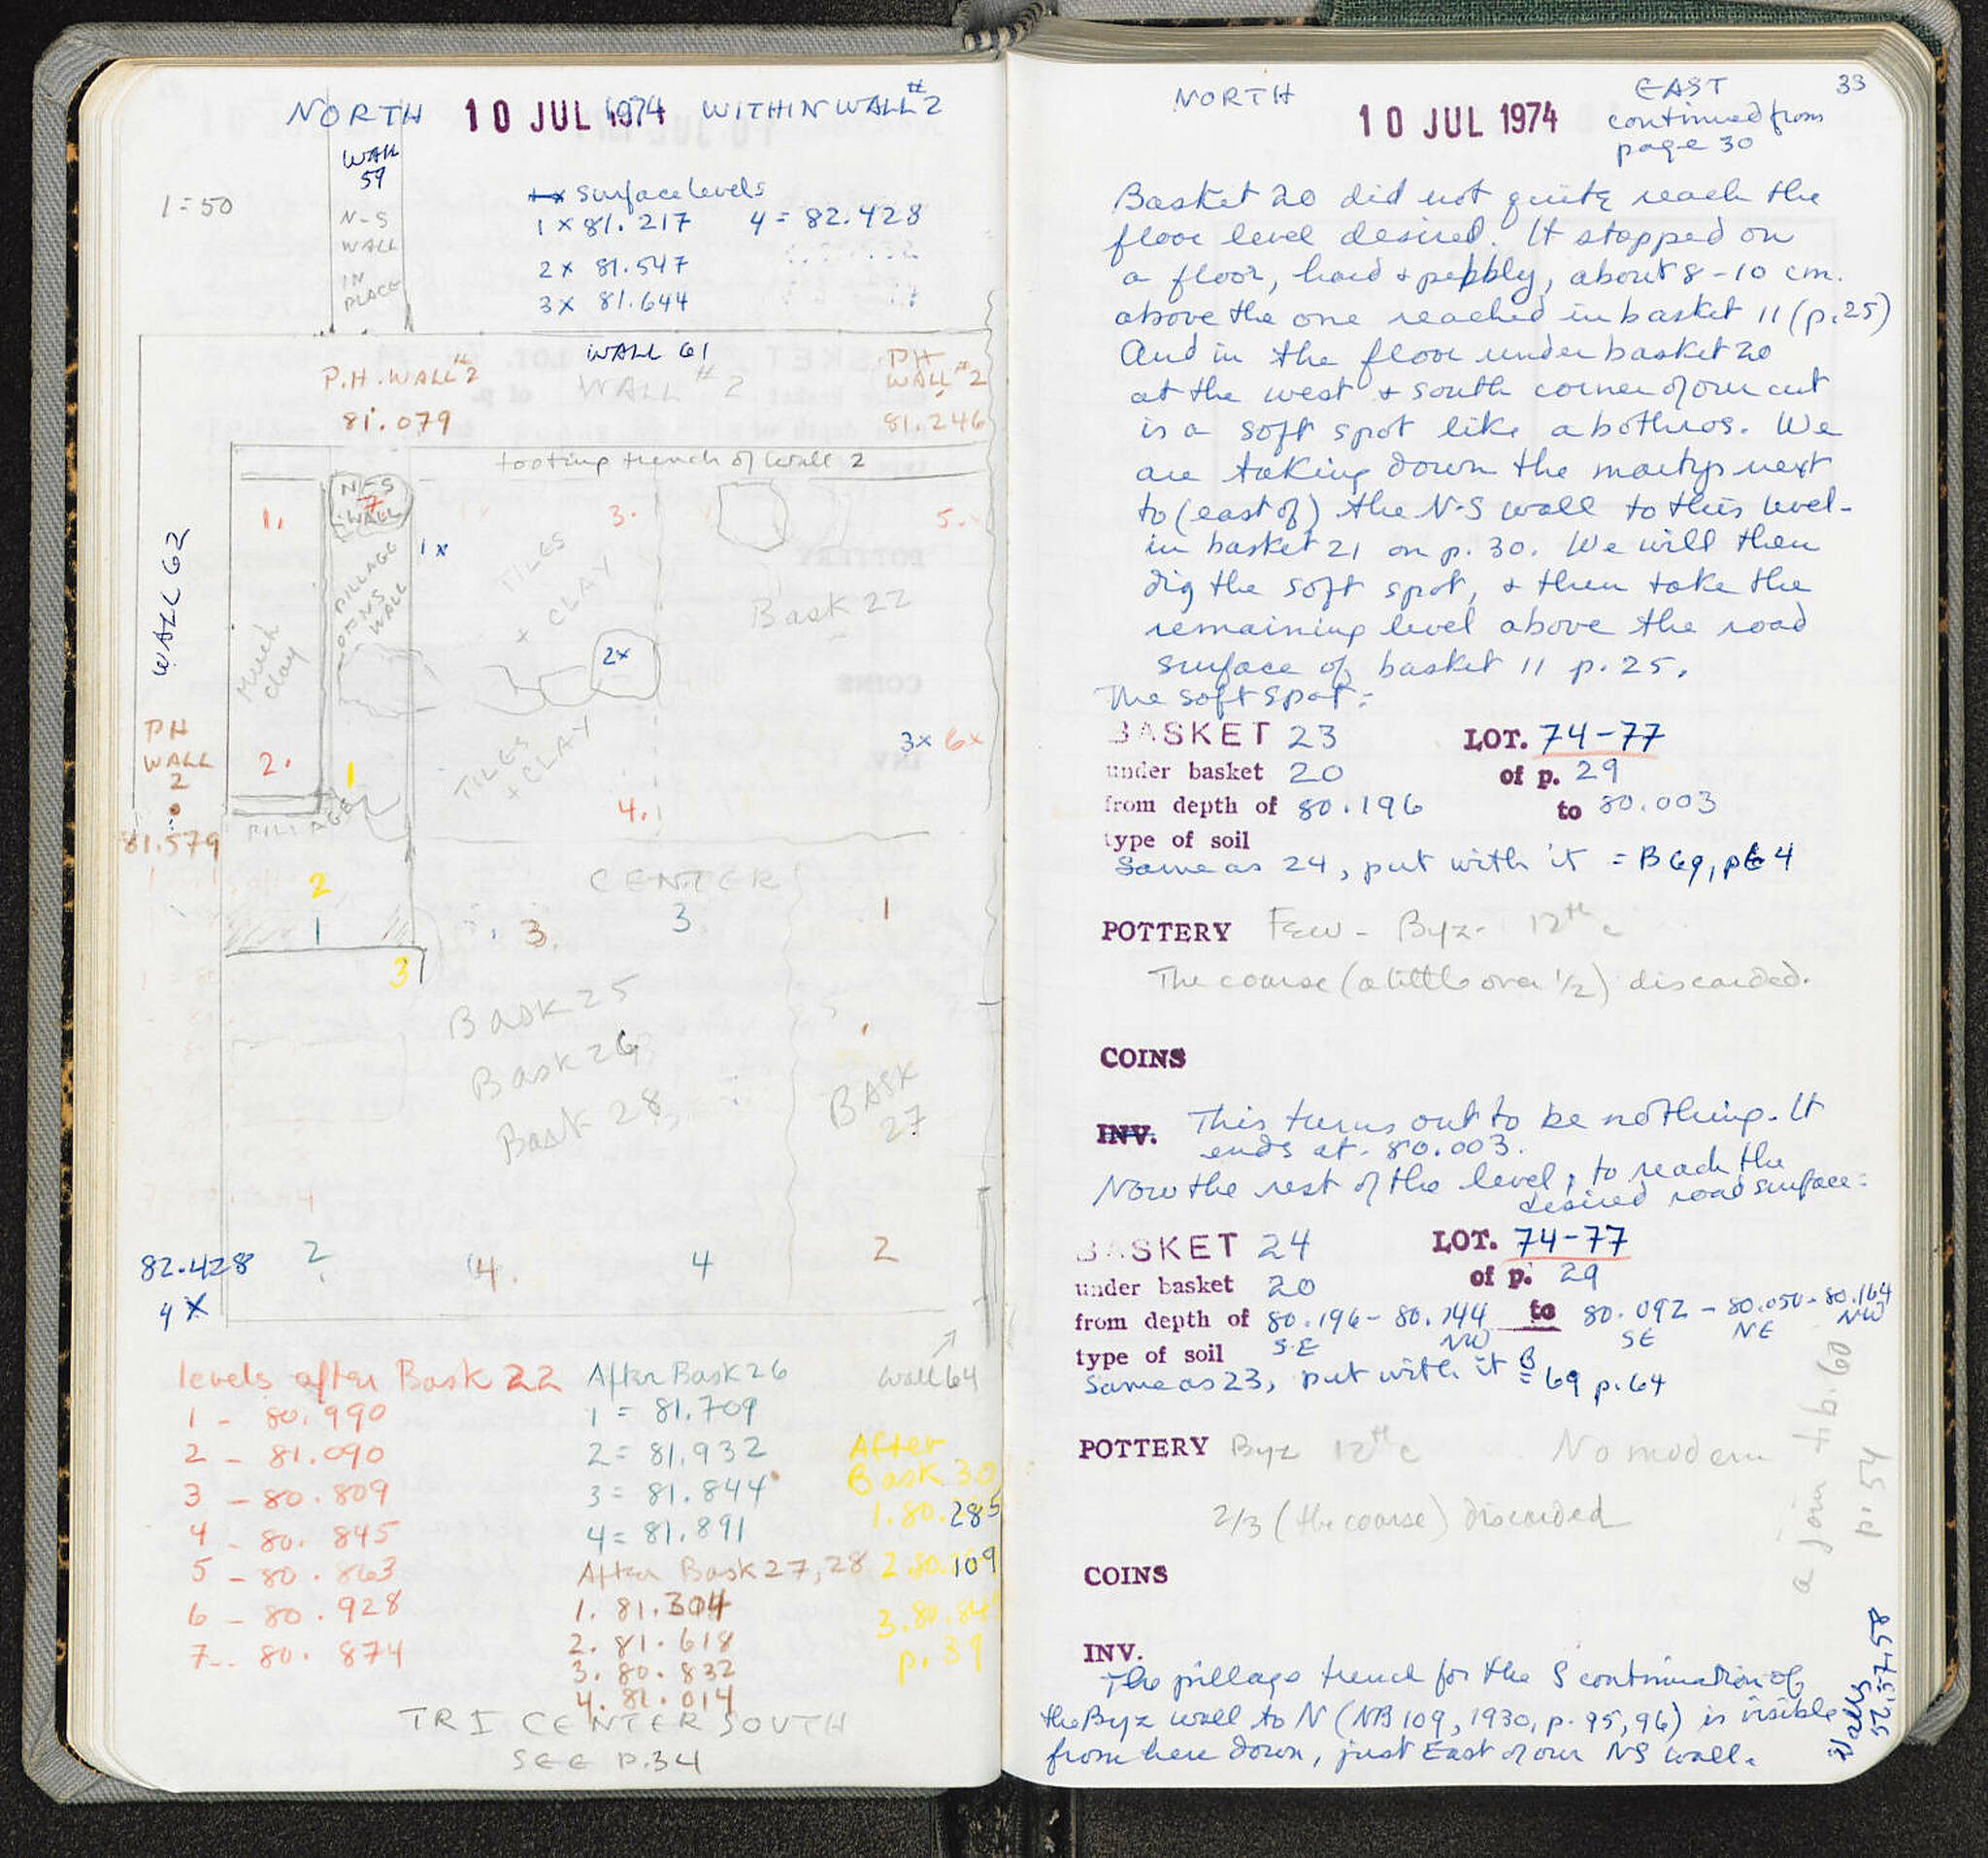 NORTH 10 JUL 1974 WITHIN WALL #2
WALL
59
1=50
N-S
WALL
IN
PLACE
surface levels
1 x 81.217 4 = 82.428
2x 81.547
3x 81.644
WALL 61
P.H. WALL #2
WALL #2
PH
WALL #2
81.079
81.246
footing trench of Wall 2
N-S
WALL
7
1.
3.
5.
1 x
WALL 62
PILLAGE
OF NS
WALL
TILES
+ CLAY
Bask 22
Much
clay
2x
PH
WALL
2
81.579
2.
1
TILES
+ CLAY
3x 6x
4.
PILLAGE
2
CENTER
1
3.
3
1
3
Bask 25
Bask 26
Bask 28
BASK
27
82.428
4 X
2
4.
4
2
wall 64
levels after Bask 22
1 - 80.990
2 - 81.090
3 - 80.809
4 - 80.845
5 - 80.863
6 - 80.928
7 - 80.874
After Bask 26
1 = 81.709
2 = 81.932
3 = 81.844
4 = 81.891
After Bask 27, 28
1. 81.304
2. 81.618
3. 80.832
4. 81.014
After
Bask 30
1. 80.285
2. 80.109
3. 80.84
p. 39
TRI CENTER SOUTH
SEE P.34
NORTH
10 JUL 1974
EAST
continued from
page 30
33
Basket 20 did not quite reach the
floor level desired. It stopped on
a floor, hard + pebbly, about 8-10 cm.
above the one reached in basket 11 (p.25)
And in the floor under basket 20
at the west + south corner of our cut
is a soft spot like a bothros. We
are taking down the martyr next
to (east of) the N-S wall to this level-
in basket 21 on p. 30. We will then
dig the soft spot, + then take the
remaining level above the road
surface of basket 11 p. 25.
The soft spot:
BASKET 23 LOT. 74-77
under basket 20 of p. 29
from depth of 80.196 to 80.003
type of soil
Same as 24, put with it = B 69, p 64
POTTERY Few - Byz - 12th c
The coarse (a little over 1/2) discarded.
COINS
INV. This turns out to be nothing. It
ends at - 80.003.
Now the rest of the level, to reach the
desired road surface:
BASKET 24 LOT. 74-77
under basket 20 of p. 29
from depth of 80.196 - 80.144 to 80.092 - 80.050 - 80.164
SE NW SE NE NW
type of soil
Same as 23, put with it = B 69 p. 64
POTTERY Byz 12th c No modern
2/3 (the coarse) discarded
a join f b. 60
p. 54
COINS
INV.
The pillage trench for the S continuation of
the Byz wall to N (NB 109, 1930, p. 95, 96) is visible
from here down, just East of our NS wall.
Walls
52, 57, 58